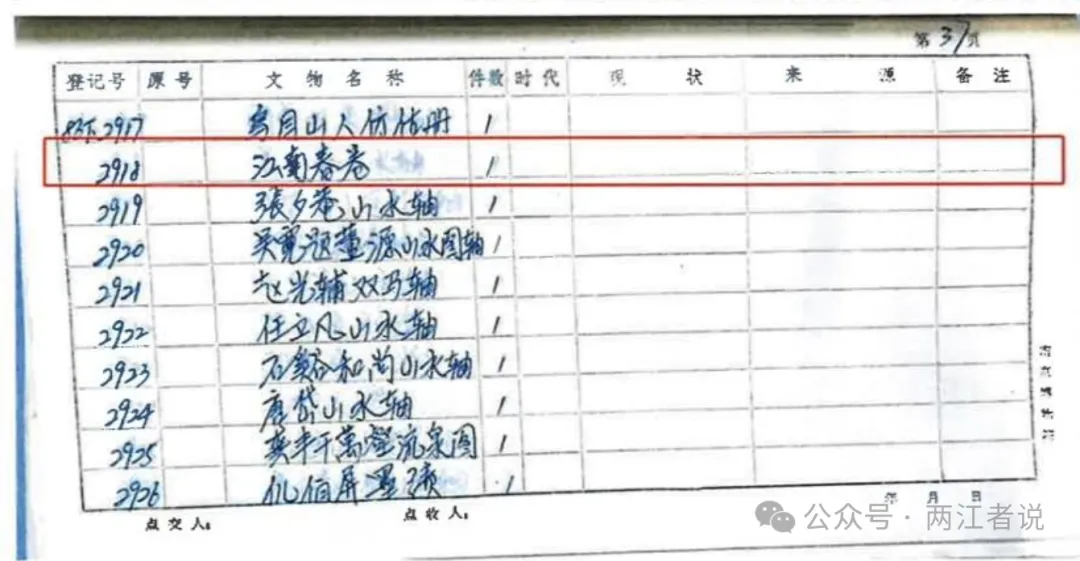 第37页
登记号 原号 文物名称 件数 时代 现状 来源 备注
835.2917 山人仿古册 1
2918 江南春卷 1
2919 張夕菴山水轴 1
2920 吴宽题董源山水图轴 1
2921 赵光辅双马轴 1
2922 任立凡山水轴 1
2923 石谷和尚山水轴 1
2924 唐岱山水轴 1
2925 千萬壑流泉图 1
2926 伯屏墨 1
年 月 日
点交人: 点收人:
公众号·两江者说